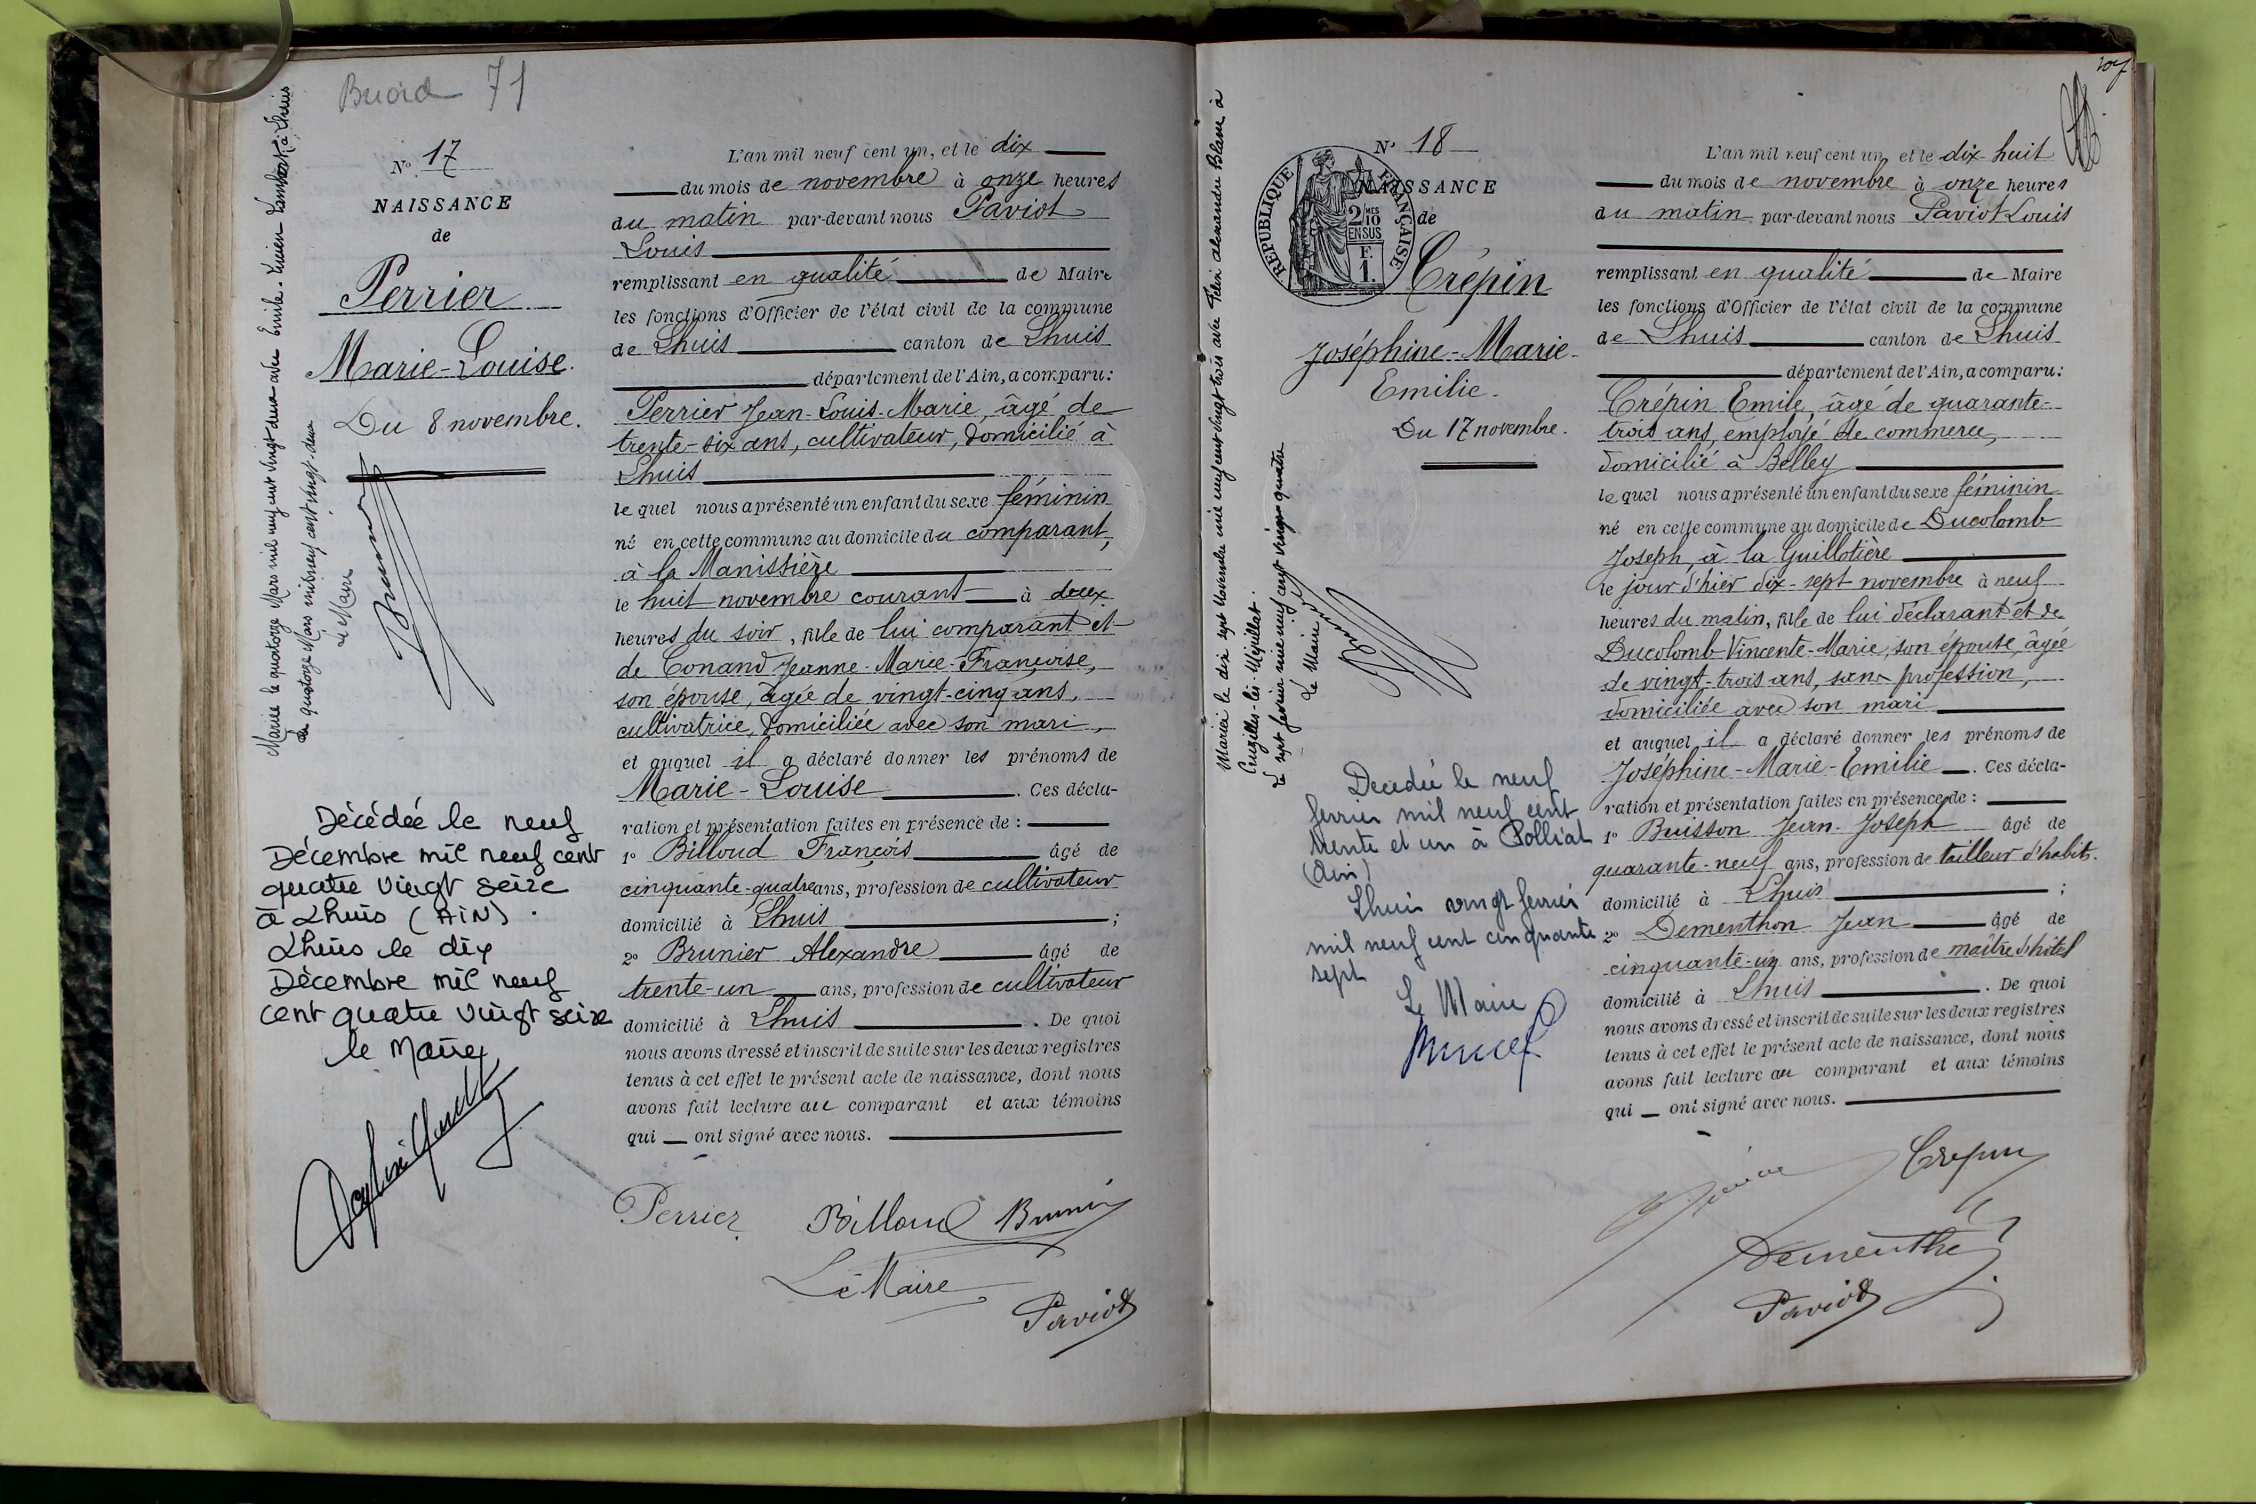 Briord 71
Nº 17
NAISSANCE
de
Perrier
Marie-Louise.
Du 8 novembre.
Mariée le quatorze Mars mil neuf cent vingt deux avec Emile-Lucien à Lhuis
le quatorze Mars mil neuf cent vingt-deux
le Maire
Décédée le neuf
Décembre mil neuf cent
quatre vingt seize
à Lhuis (AIN).
Lhuis le dix
Décembre mil neuf
cent quatre vingt seize
le Maire
L'an mil neuf cent un, et le dix
du mois de novembre à onze heures
du matin par-devant nous Paviot
Louis
remplissant en qualité de Maire
les fonctions d'Officier de l'état civil de la commune
de Lhuis canton de Lhuis
département de l'Ain, a comparu:
Perrier Jean-Louis-Marie, âgé de
trente-six ans, cultivateur, domicilié à
Lhuis
le quel nous a présenté un enfant du sexe féminin
né en cette commune au domicile du comparant,
à la Manissière
le huit novembre courant à deux
heures du soir, fille de lui comparant et
de Conand Jeanne-Marie-Françoise,
son épouse, âgée de vingt-cinq ans,
cultivatrice, domiciliée avec son mari,
et auquel il a déclaré donner les prénoms de
Marie-Louise. Ces décla-
ration et présentation faites en présence de :
1º Billoud François âgé de
cinquante-quatre ans, profession de cultivateur
domicilié à Lhuis ;
2º Brunier Alexandre âgé de
trente-un ans, profession de cultivateur
domicilié à Lhuis. De quoi
nous avons dressé et inscrit de suite sur les deux registres
tenus à cet effet le présent acte de naissance, dont nous
avons fait lecture au comparant et aux témoins
qui ont signé avec nous.
Perrier Billoud Brunier
Le Maire
Paviot
107
Nº 18
NAISSANCE
de
REPUBLIQUE FRANÇAISE
2/10 MES
EN SUS
F.
1.
Crépin
Joséphine-Marie-
Emilie.
Du 17 novembre.
Mariée le dix sept Novembre mil neuf cent vingt trois avec Félix Alexandre Blanc à
Cruzilles-lès-Mépillat.
le sept février mil neuf cent vingt-quatre
Le Maire
Décédée le neuf
février mil neuf cent
trente et un à Polliat
(Ain)
Lhuis vingt février
mil neuf cent cinquante
sept
Le Maire
L'an mil neuf cent un et le dix-huit
du mois de novembre à onze heures
du matin par-devant nous Paviot Louis
remplissant en qualité de Maire
les fonctions d'Officier de l'état civil de la commune
de Lhuis canton de Lhuis
département de l'Ain, a comparu:
Crépin Emile, âgé de quarante-
trois ans, employé de commerce,
domicilié à Belley
le quel nous a présenté un enfant du sexe féminin
né en cette commune au domicile de Ducolomb
Joseph, à la Guillotière
le jour d'hier dix-sept novembre à neuf
heures du matin, fille de lui déclarant et de
Ducolomb Vincente-Marie, son épouse, âgée
de vingt-trois ans, sans profession,
domiciliée avec son mari
et auquel il a déclaré donner les prénoms de
Joséphine-Marie-Emilie. Ces décla-
ration et présentation faites en présence de :
1º Buisson Jean-Joseph âgé de
quarante-neuf ans, profession de tailleur d'habits.
domicilié à Lhuis ;
2º Dementhon Jean âgé de
cinquante-un ans, profession de maître d'hôtel
domicilié à Lhuis. De quoi
nous avons dressé et inscrit de suite sur les deux registres
tenus à cet effet le présent acte de naissance, dont nous
avons fait lecture au comparant et aux témoins
qui ont signé avec nous.
Crépin
Paviot